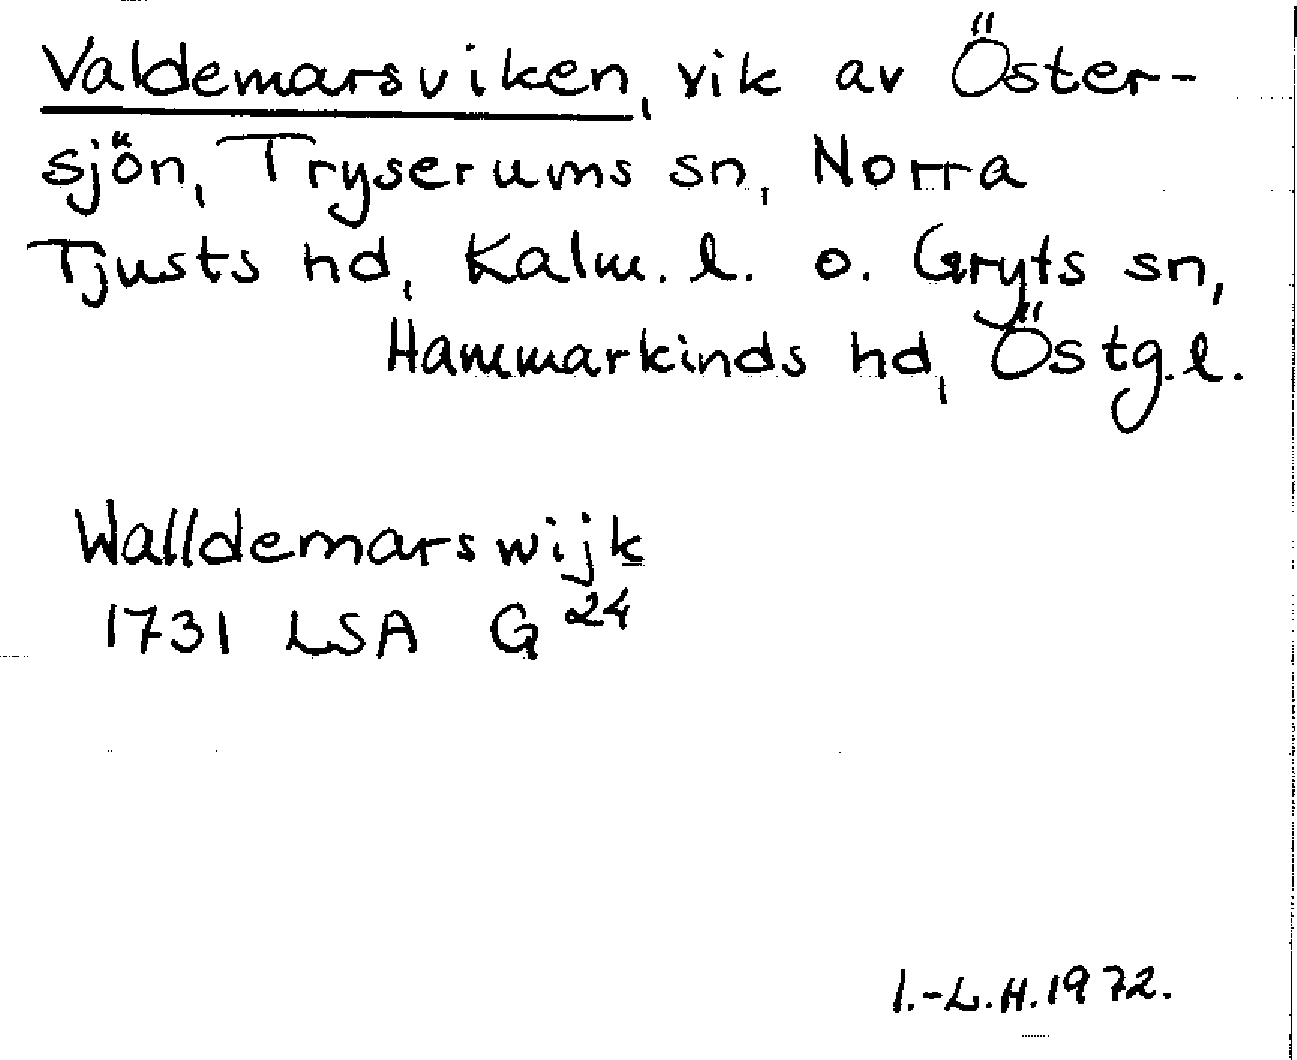 Valdemarsviken, vik av Öster-
sjön, Tryserums sn, Norra
Tjusts hd, Kalm. l. o. Gryts sn,
Hammarkinds hd, Östg. l.
Walldemarswijk
1731 LSA G 24
I.-L.H. 1972.